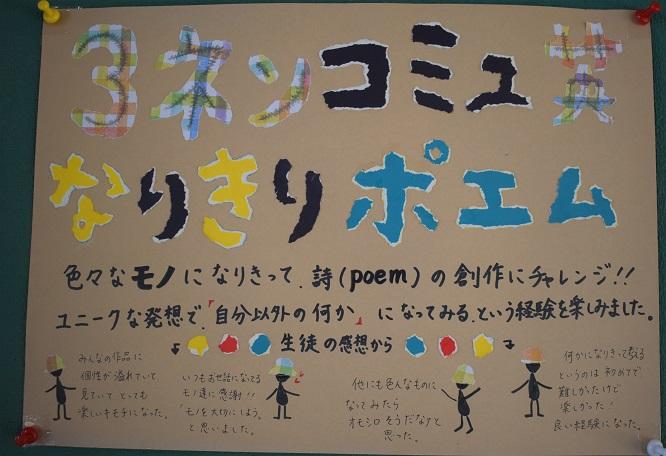 3ネンコミュ英
なりきりポエム
色々なモノになりきって、詩(poem)の創作にチャレンジ!!
ユニークな発想で、「自分以外の何か」になってみる、という経験を楽しみました。
生徒の感想から
みんなの作品に
個性が溢れていて
見ていてとっても
楽しいキモチになった。
いつもお世話になってる
モノ達に感謝!!
「モノを大切にしよう。」
と思いました。
他にも色んなものに
なってみたら
オモシロそうだなァと
思った。
何かになりきって
というのは初めてで
難しかったけど
楽しかった!
良い経験になった。